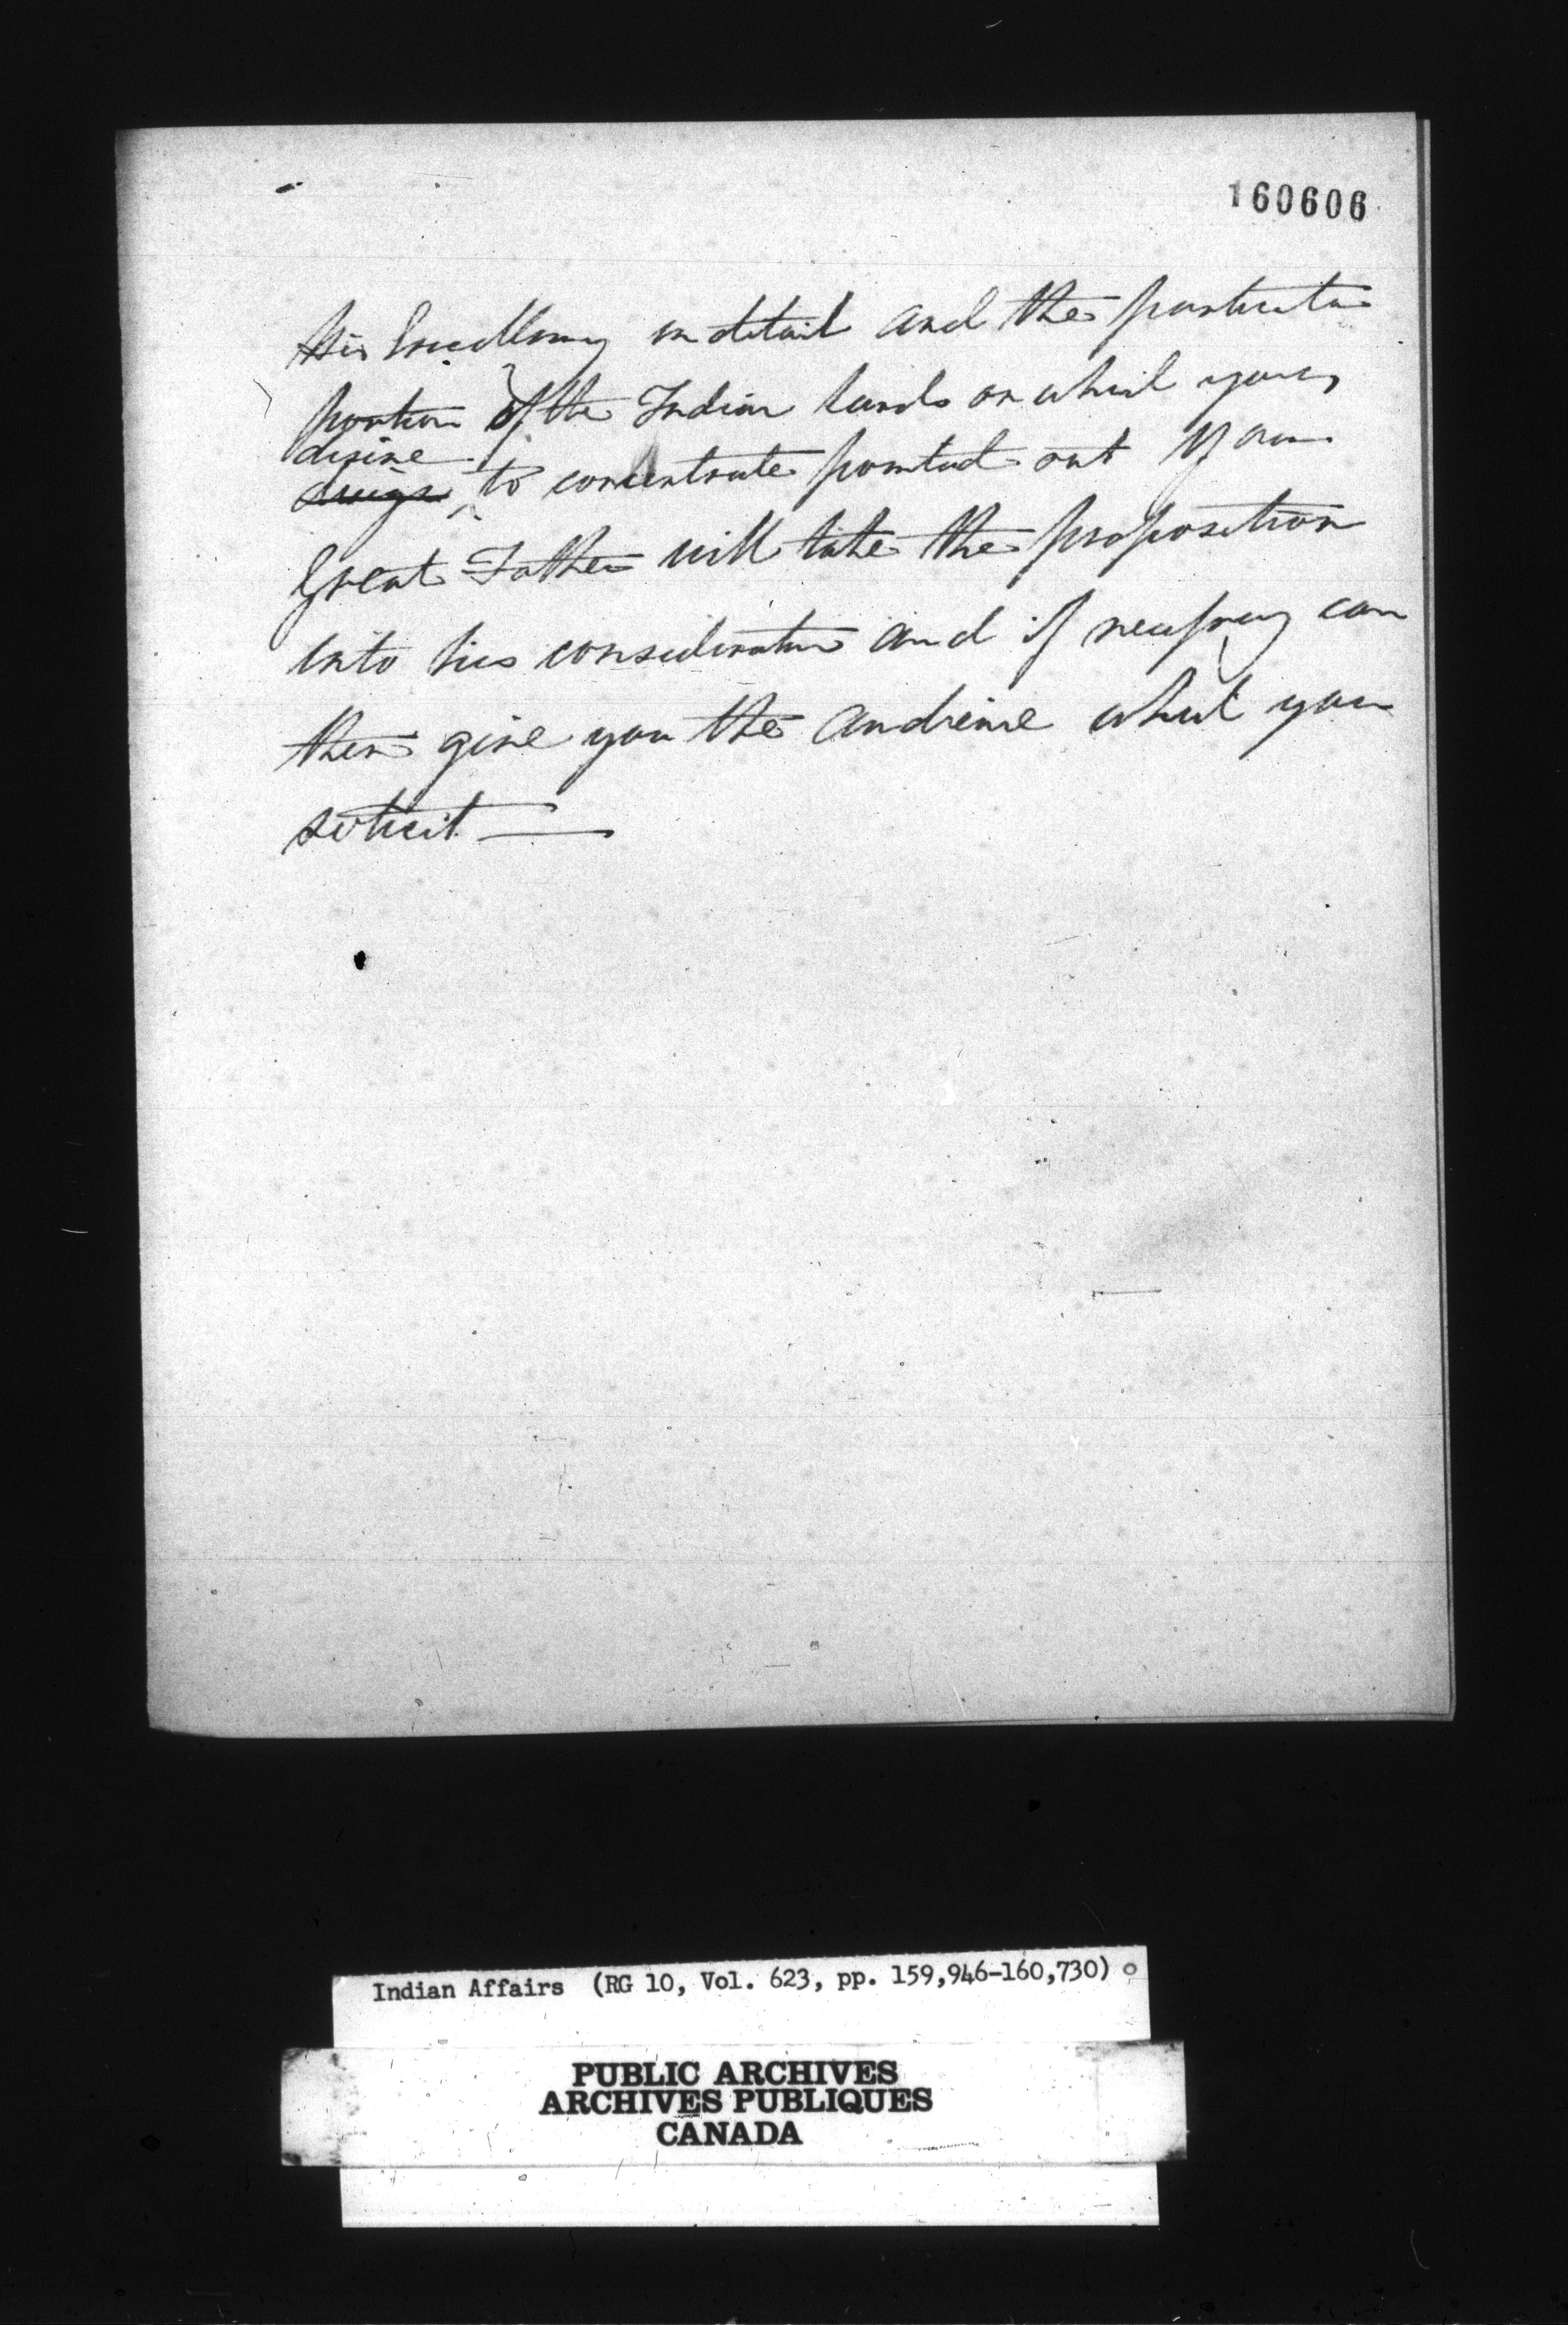 160606
His Excellency in detail and the particular
portion of the Indian lands on which you
desire
to concentrate pointed out Your
Great Father will take the proposition
into his consideration and if necessary can
then give you the audience which you
solicit —
Indian Affairs (RG 10, Vol. 623, pp. 159,946-160,730)
PUBLIC ARCHIVES
ARCHIVES PUBLIQUES
CANADA